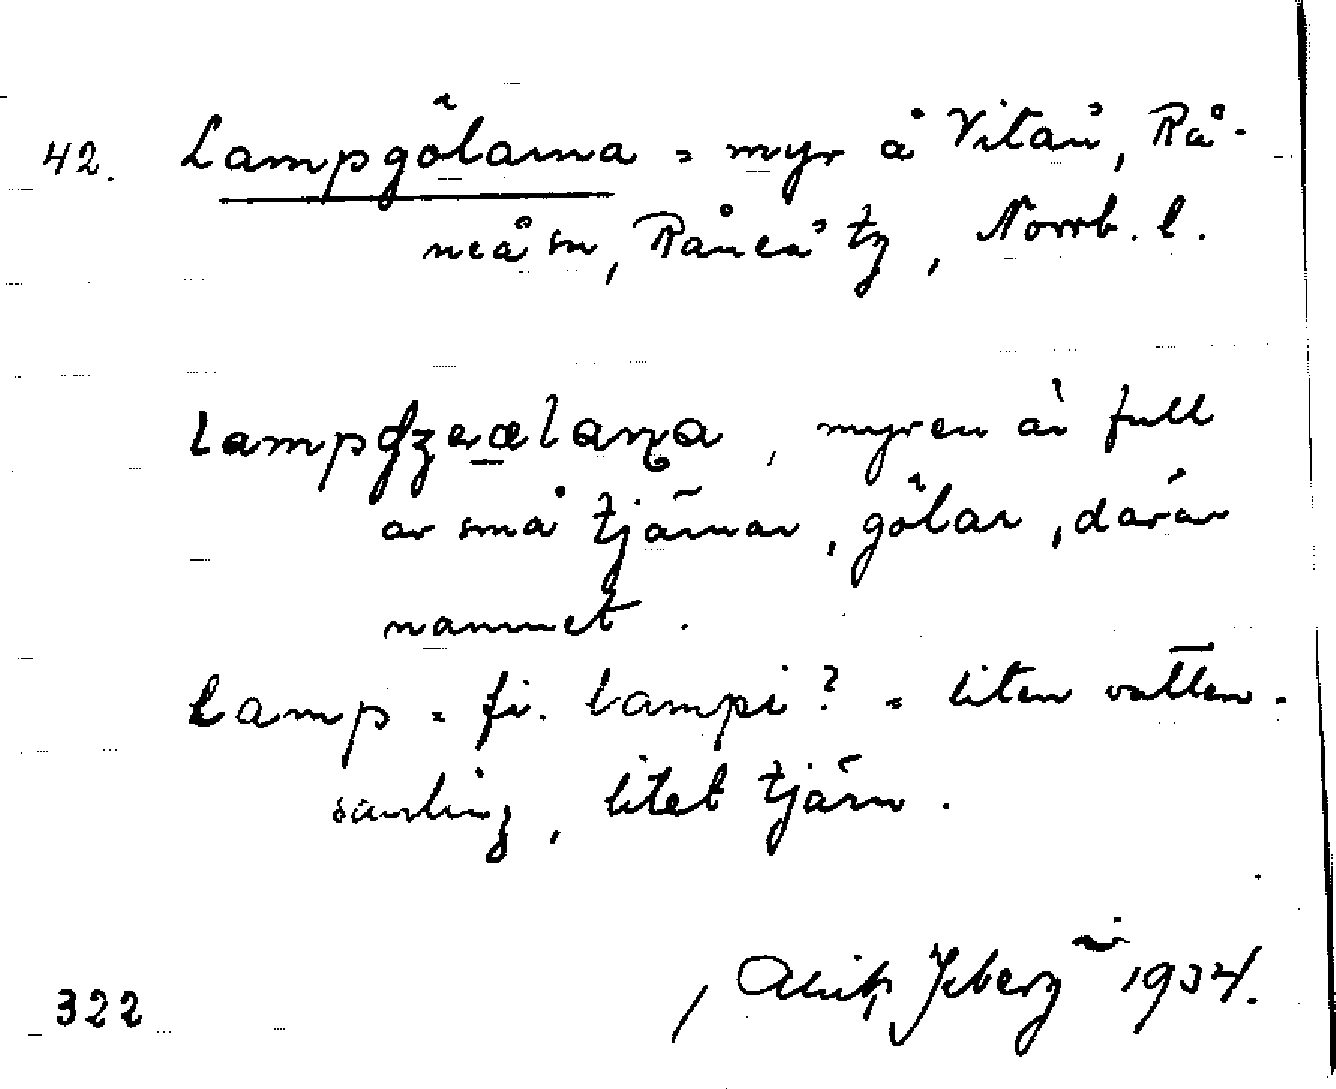 42. Lampgölarna = myr å Vitån, Rå-
neå sn, Råneå tg, Norrb. l.
myren är full
av små tjärnar, gölar, därav
namnet.
Lamp = fi. lampi? = liten vatten-
samling, litet tjärn.
1934.
322